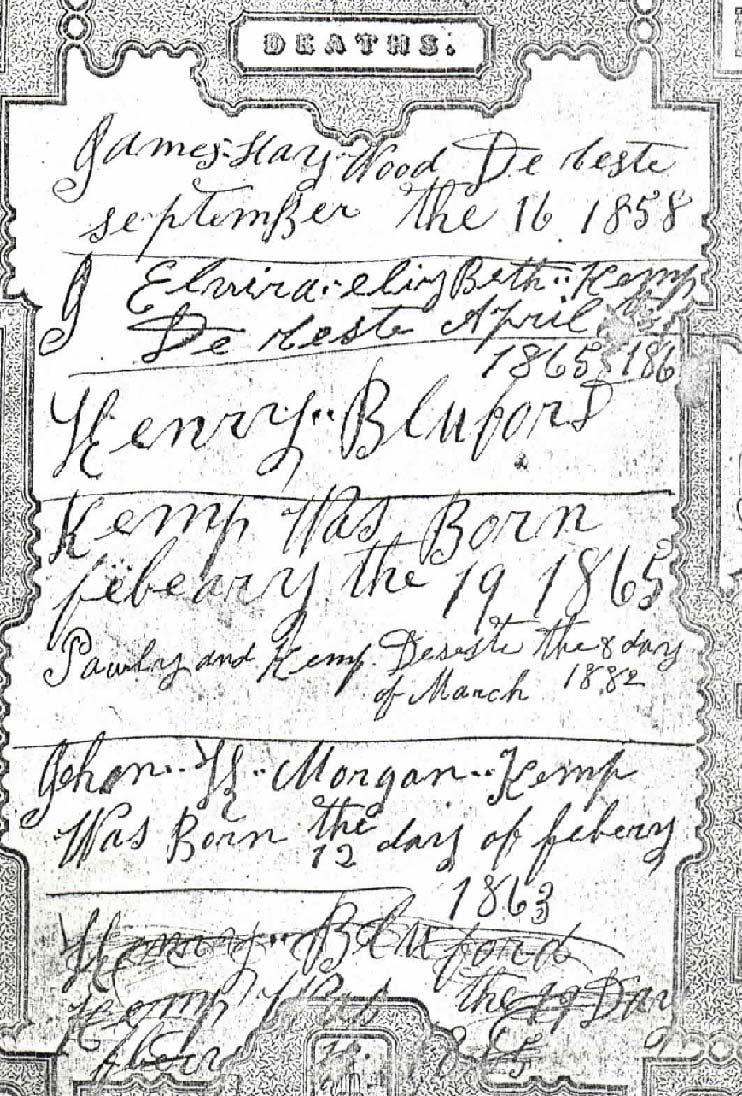 DEATHS.
James Hay Wood De seste
septemBer the 16 1858
J Elvira elizBeth Kemp
De seste April
1865 186
Henry Bluford
Kemp Was Born
febeary the 19 1865
and Kemp Deseste the 8 day
of March 1882
John H Morgan Kemp
Was Born the 12 day of febery
1863
Henry Bluford
Kemp Was the 19 Day